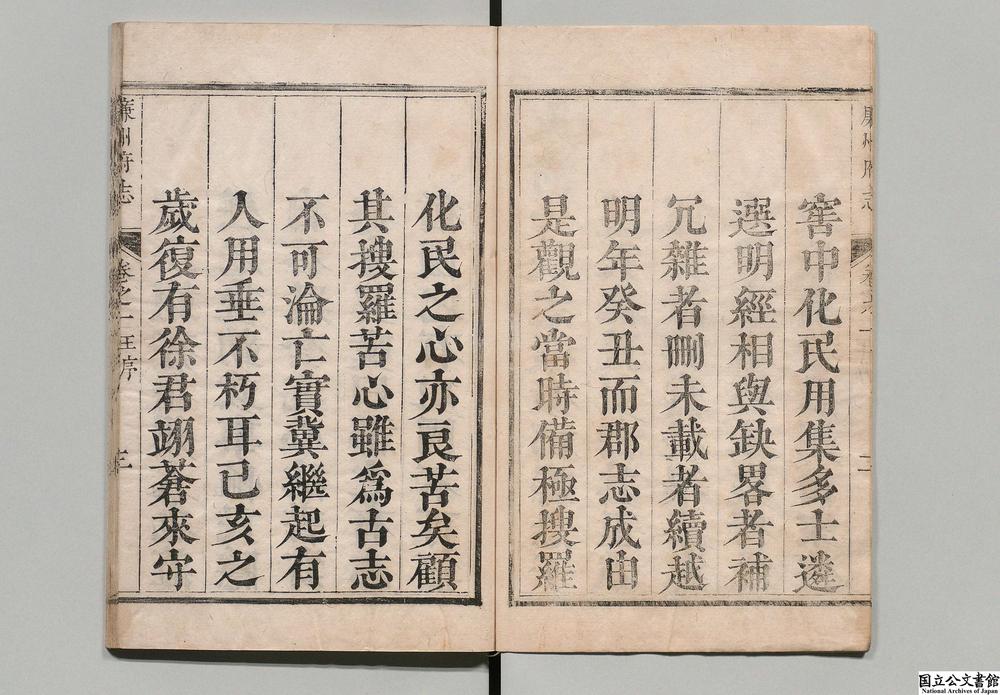 窖中化民用集多士遴
選明經相與缺畧者補
冗雜者刪未載者續越
明年癸丑而郡志成由
是觀之當時備極搜羅
化民之心亦良苦矣顧
其搜羅苦心雖爲古志
不可淪亡實冀繼起有
人用垂不朽耳己亥之
歲復有徐君翊蒼來守
廉州府志
王序
三
廉州府志
二
国立公文書館
National Archives of Japan